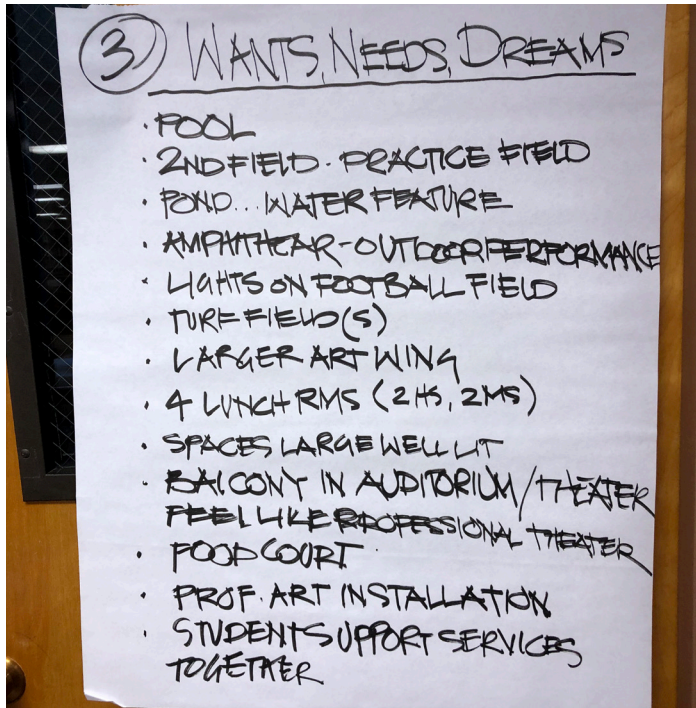 3 WANTS, NEEDS, DREAMS
· POOL
· 2ND FIELD · PRACTICE FIELD
· POND... WATER FEATURE
· AMPAITHEAR - OUTDOOR PERFORMANCE
· LIGHTS ON FOOTBALL FIELD
· TURF FIELD(S)
· LARGER ART WING
· 4 LUNCH RMS (2 HS, 2 MS)
· SPACES LARGE WELL LIT
· BALCONY IN AUDITORIUM / THEATER
FEEL LIKE PROFESSIONAL THEATER
· FOOD COURT
· PROF. ART INSTALLATION
· STUDENT SUPPORT SERVICES
TOGETHER